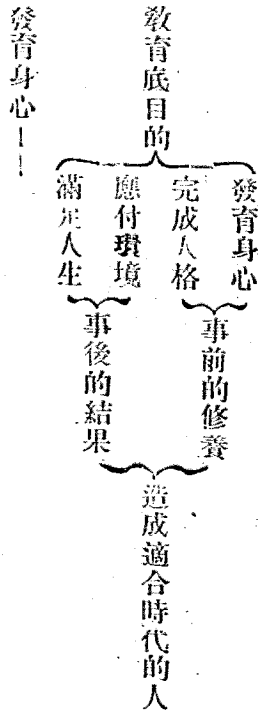 教育底目的
發育身心
完成人格
應付環境
滿足人生
事前的修養
事後的結果
造成適合時代的人
發育身心——